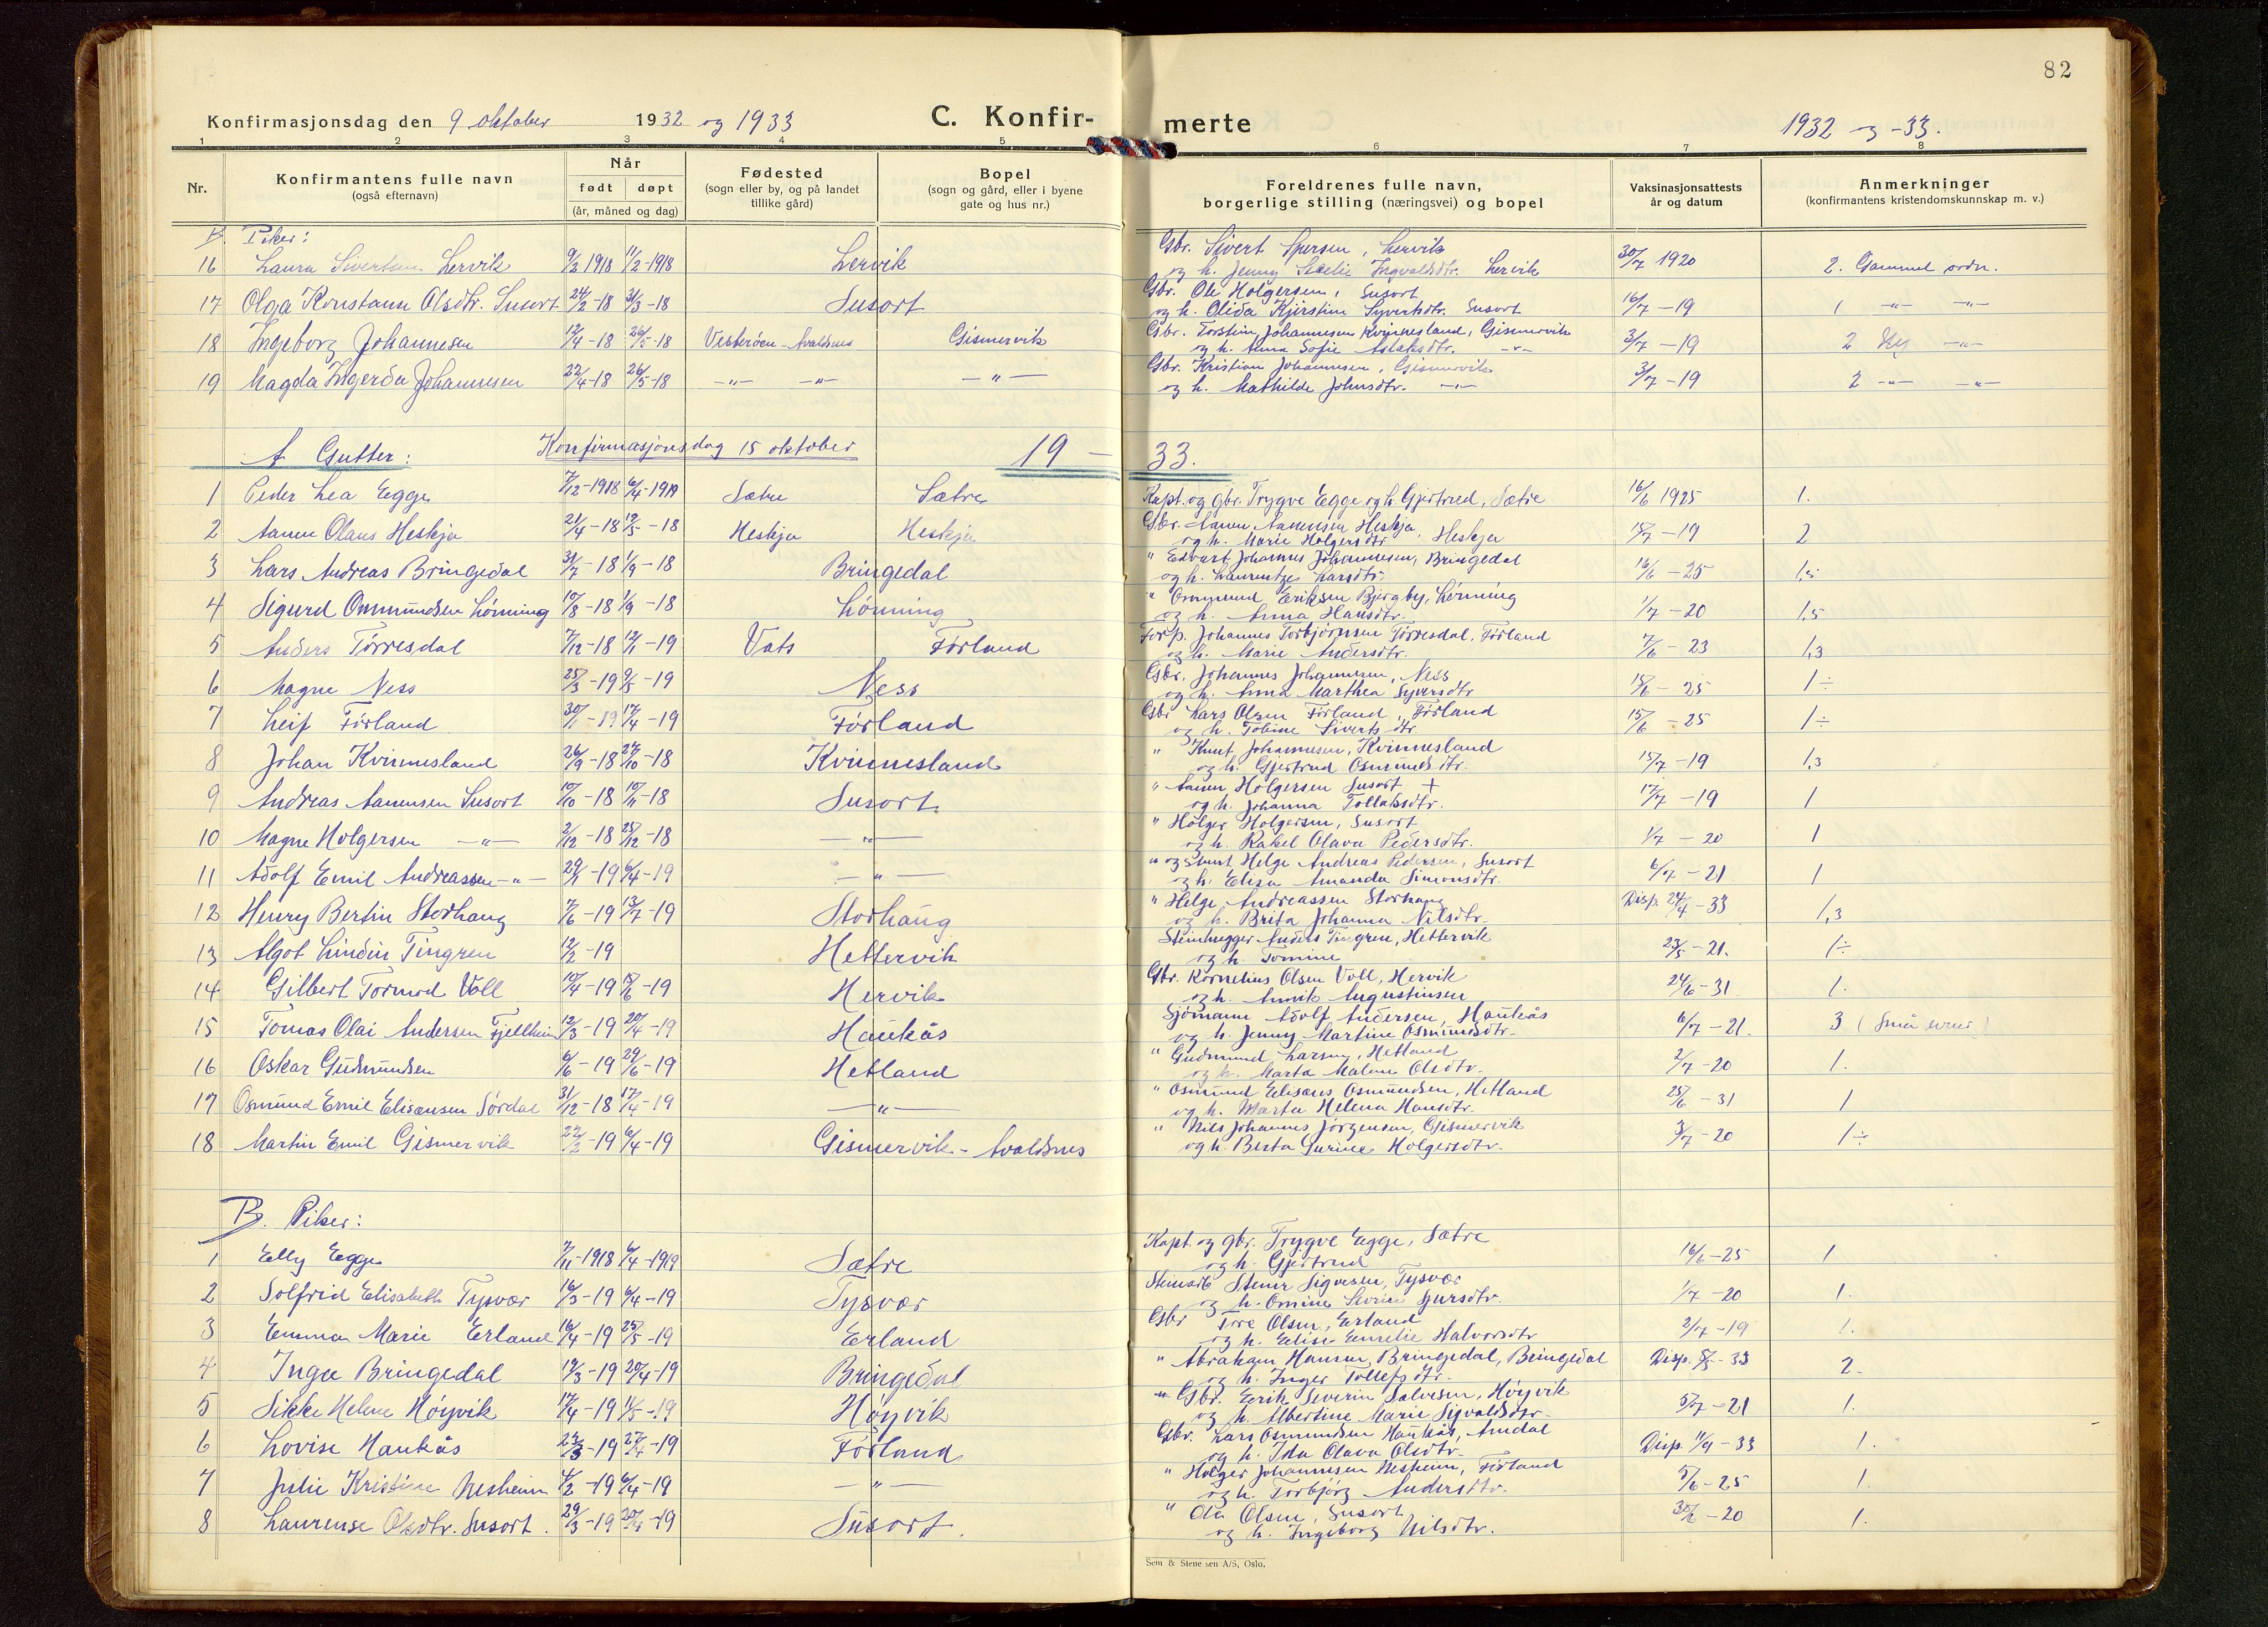 82
Konfirmasjonsdag den 9 oktober 1932 og 1933 C. Konfir- merte 1932 og -33.
1 2 3 4 5 6 7 8
Nr. Konfirmantens fulle navn (også efternavn) Når født døpt (år, måned og dag) Fødested (sogn eller by, og på landet tillike gård) Bopel (sogn og gård, eller i byene gate og hus nr.) Foreldrenes fulle navn, borgerlige stilling (næringsvei) og bopel Vaksinasjonsattests år og datum Anmerkninger (konfirmantens kristendomskunnskap m. v.)
B. Piker:
16 Laura Sivertsen Lervik 9/2 1918 11/2-1918 Lervik Gbr. Sivert Sjursen, Lervik
og h. Jenny Ingvaldsdtr. Lervik 30/7 1920 2. Gammel ordn.
17 Olga Konstanse Olsdtr. Susort 24/2-18 31/3-18 Susort Gbr. Ole Holgersen, Susort
og h. Olida Kjirstine Syvertsdtr. Susort 16/7-19 1 -"- -"-
18 Ingeborg Johannesen 12/4-18 26/5-18 Vesterøen-Avaldsnes Gismervik Gbr. Torstein Johannesen Kvinnesland, Gismervik
og h. Anna Sofie Aslaksdtr. -"- 3/7-19 2 Ny -"-
19 Magda Ingerda Johannesen 22/4-18 26/5-18 -"- -"- -"- Gbr. Kristian Johannesen, Gismervik
og h. Mathilde Johnsdtr. -"- 3/7-19 2 -"- -"-
A Gutter: Konfirmasjonsdag 15 oktober 19 - 33.
1 Peder Lea Egge 7/12-1918 6/4-1919 Sætre Sætre Kapt. og gbr. Trygve Egge og h. Gjertrud, Sætre 16/6 1925 1.
2 Aanen Olaus Heskja 21/4-18 19/5-18 Heskja Heskja Gbr. Aanen Aanensen Heskja, Heskja
og h. Marie Holgersdtr. 15/7-19 2
3 Lars Andreas Bringedal 31/7-18 1/9-18 Bringedal " Edvart Johannes Johannesen, Bringedal
og h. Laurentze Larsdtr. 16/6-25 1,5
4 Sigurd Ommundsen Lønning 10/8-18 1/9-18 Lønning " Ommund Eriksen Bjergby, Lønning
og h. Anna Hansdtr. 1/7-20 1,5
5 Anders Tørresdal 7/12-18 12/1-19 Vats Førland Forp. Johannes Torbjørnsen Tørresdal, Førland
og h. Marie Andersdtr. 7/6-23 1,3
6 Magne Ness 25/3-19 9/5-19 Ness Gbr. Johannes Johannesen, Ness
og h. Anna Marthea Syversdtr 15/6-25 1÷
7 Leif Førland 30/1-19 17/4-19 Førland Gbr Lars Olsen Førland, Førland
og h. Tobine Siverts dtr. 15/6-25 1÷
8 Johan Kvinnesland 26/9-18 27/10-18 Kvinnesland " Knut Johannesen, Kvinnesland
og h. Gjertrud Osmundsdtr. 15/7-19 1,3
9 Andreas Aanensen Susort 10/10-18 10/11-18 Susort. " Aanen Holgersen Susort +
og h. Johanna Tollaksdtr. 17/7-19 1
10 Magne Holgersen -"- 2/12-18 25/12-18 -"- " Holger Holgersen, Susort
og h. Rakel Olava Pedersdtr. 1/7-20 1
11 Adolf Emil Andreassen -"- 29/1-19 6/4-19 -"- " og Helge Andreas Pedersen, Susort
og h. Eliza Amanda Simonsdtr. 6/7-21 1
12 Henry Bertin Storhaug 7/6-19 13/7-19 Storhaug " Helge Andreassen Storhaug
og h. Brita Johanna Nilsdtr. Disp 24/4-33 1,3
13 Algot Lindin Tingren 12/2-19 Hettervik Steinhugger Anders Tingren, Hettervik
og h. Tomine 23/5-21. 1÷
14 Gilbert Tormod Voll 10/4-19 15/6-19 Hervik Gbr. Kornelius Olsen Voll, Hervik
og h. Annik Augustinsen 24/6-31 1.
15 Tomas Olai Andersen Fjellheim 12/3-19 20/4-19 Haukås Sjømann Adolf Andersen, Haukås
og h. Jenny Martine Osmundsdtr. 6/7-21. 3 (Små evner)
16 Oskar Gudmundsen 6/6-19 29/6-19 Hetland " Gudmund Larsen, Hetland
og h. Marta Malene Olsdtr. 2/7-20 1.
17 Osmund Emil Elisæusen Sørdal 31/12-18 17/4-19 -"- " Osmund Elisæus Osmundsen, Hetland
og h. Marta Helena Hansdtr. 25/6-31 1
18 Martin Emil Gismervik 22/2-19 6/4-19 Gismervik - Avaldsnes " Nils Johannes Jørgensen, Gismervik
og h. Berta Gurine Holgersdtr. 3/7-20 1÷
B. Piker:
1 Elly Egge 7/11-1918 6/4-1919 Sætre Kapt. og gbr. Trygve Egge, Sætre
og h. Gjertrud 16/6-25 1
2 Solfrid Elisabeth Tysvær 16/3-19 6/4-19 Tysvær Steinarb Steinr Sigvesen, Tysvær
og h. Omine Severine Sjursdtr. 1/7-20 1.
3 Emma Marie Erland 16/4-19 25/5-19 Erland Gbr Tore Olsen, Erland
og h. Elise Emelie Halvorsdtr 2/7-19 1.
4 Inga Bringedal 19/3-19 20/4-19 Bringedal " Abraham Hansen, Bringedal, Bringedal
og h. Inger Tollefsdtr. Disp. 8/5-33 2.
5 Sikke Helene Høyvik 17/4-19 11/5-19 Høyvik " Gbr. Eerik Severin Salvesen, Høyvik
og h. Albertine Marie Sigvaldsdtr. 5/7-21 1.
6 Lovise Haukås 23/3-19 27/4-19 Førland Gbr. Lars Osmundsen Haukås, Amdal
og h. Ida Olava Olsdtr. Disp. 11/9-33 1.
7 Julie Kristine Nesheim 4/2-19 6/4-19 -"- " Holger Johannesen Nesheim, Førland
og h. Torbjørg Andersdtr. 5/6-25 1.
8 Laurense Olsdtr. Susort. 29/3-19 20/4-19 Susort. " Ole Olsen, Susort
og h. Ingeborg Nilsdtr. 30/6-20 1.
Sem & Stenersen A/S, Oslo.